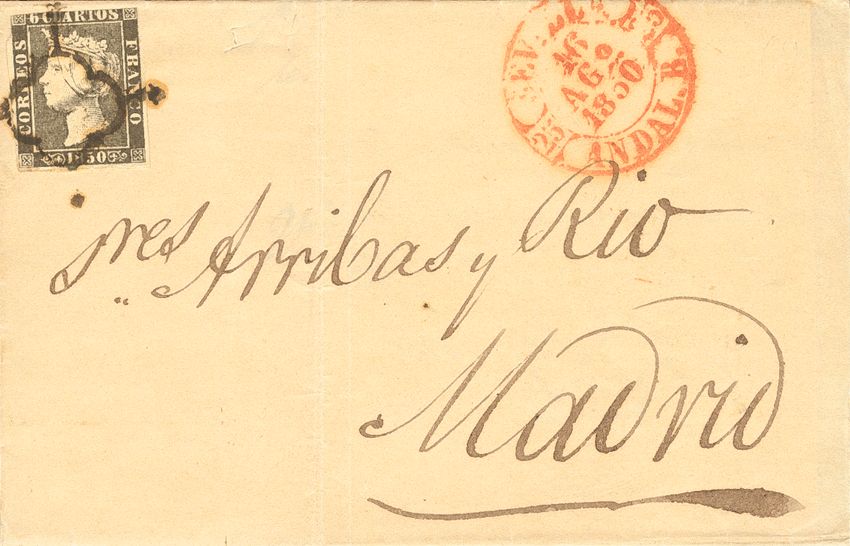 6 CUARTOS
CORREOS
FRANCO
1850
SEVILLA
16
AGO
1850
ANDAL. B.
Sres Arribas y Rio
Madrid